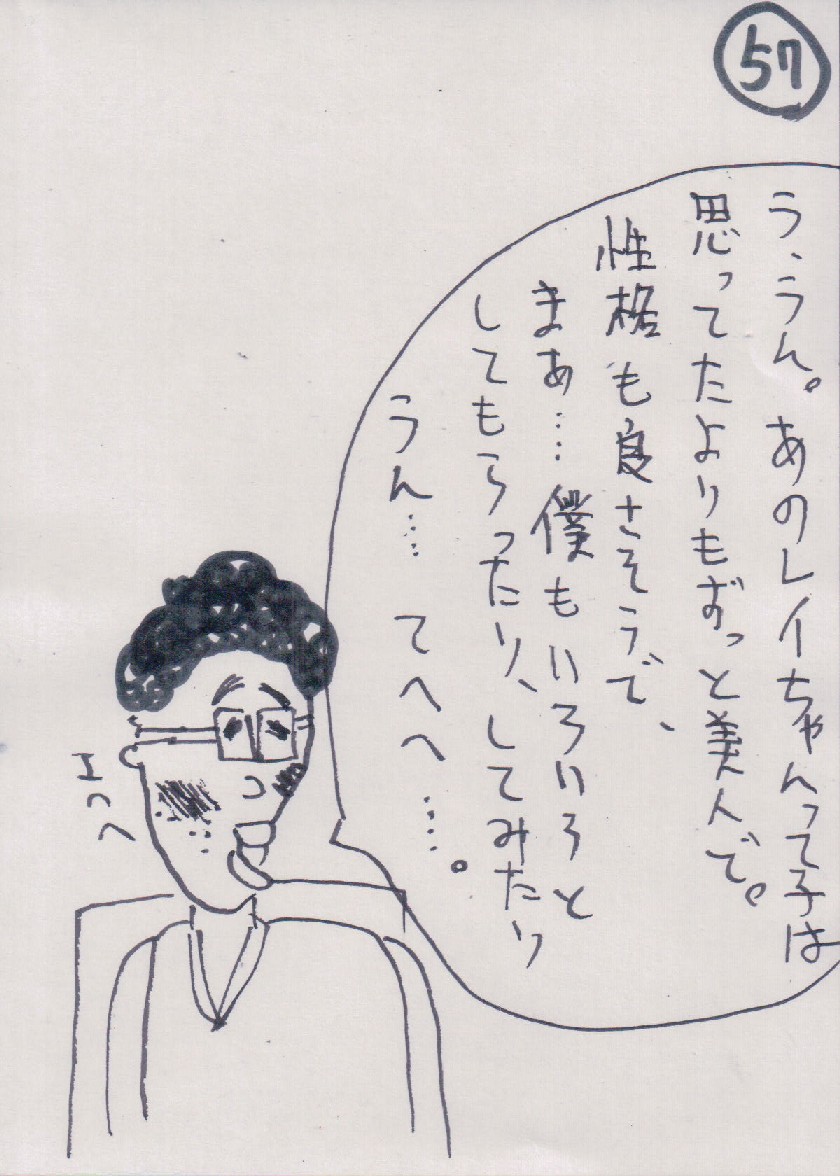 57
う、うん。あのレイちゃんって子は
思ってたよりもずっと美人で。
性格も良さそうで、
まあ…僕もいろいろと
してもらったり、してみたり
うん… てへへ…。
エヘヘ